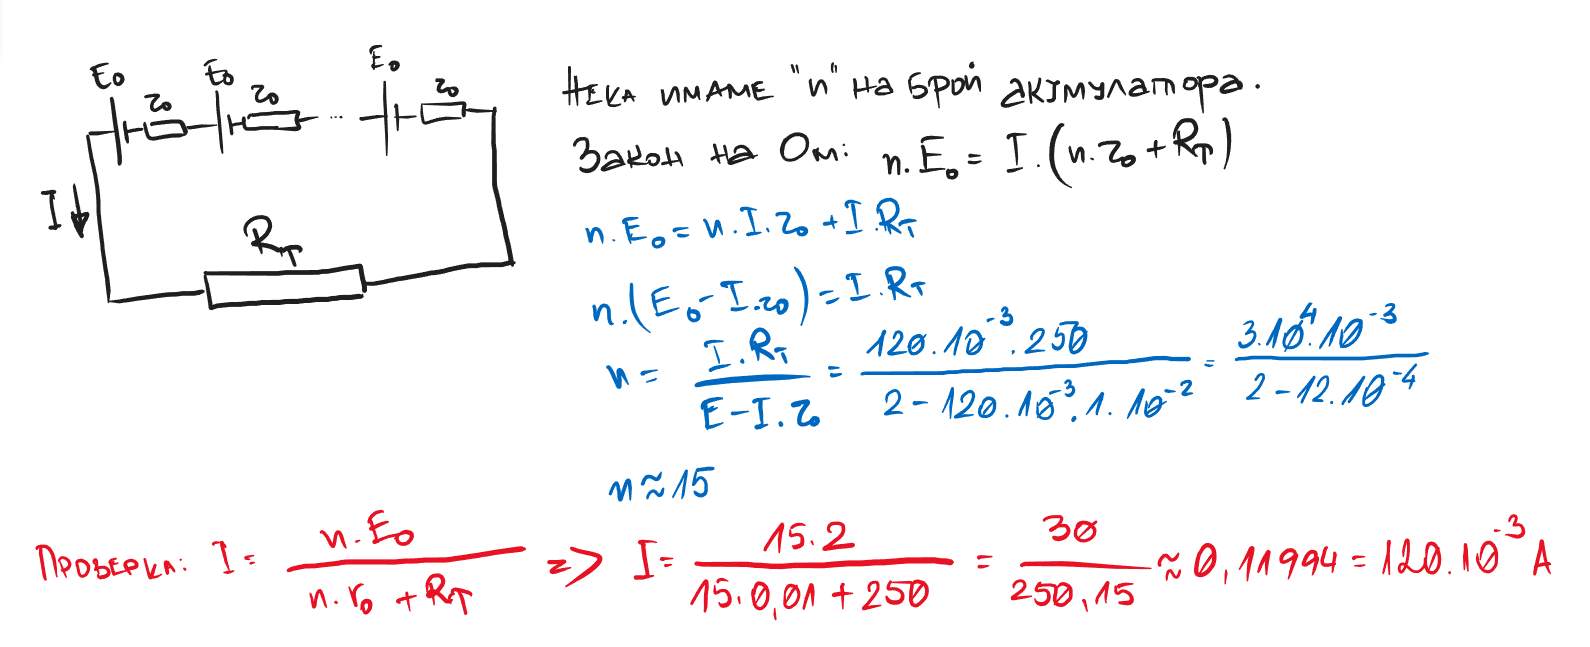 E₀ r₀ E₀ r₀ ... E₀ r₀
I
R_T
Нека имаме "n" на брой акумулатора.
Закон на Ом: n.E₀ = I.(n.r₀ + R_T)
n.E₀ = n.I.r₀ + I.R_T
n.(E₀ - I.r₀) = I.R_T
n = I.R_T / (E - I.r₀) = 120.10⁻³.250 / (2 - 120.10⁻³.1.10⁻²) = 3.10⁴.10⁻³ / (2 - 12.10⁻⁴)
n ≈ 15
Проверка: I = n.E₀ / (n.r₀ + R_T) => I = 15.2 / (15.0,01 + 250) = 30 / 250,15 ≈ 0,11994 = 120.10⁻³ A